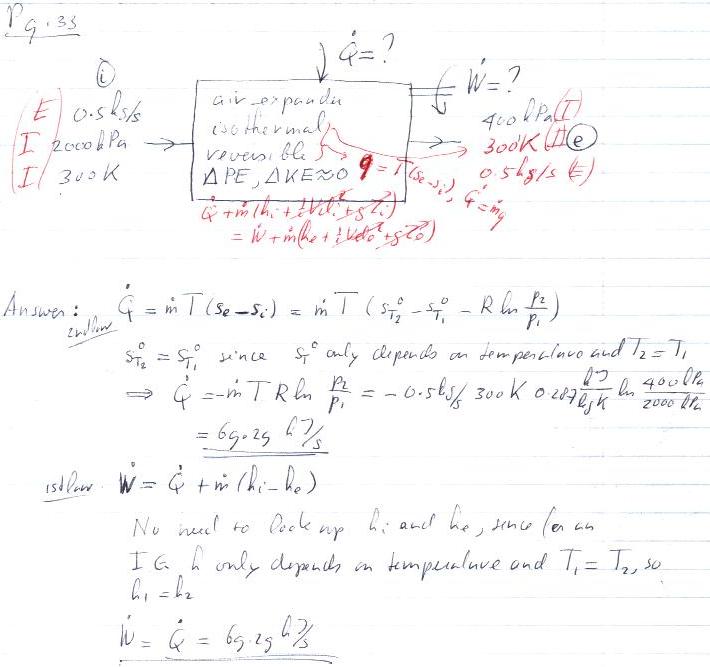 P 9.33
Q̇ = ?
(i)
Ẇ = ?
(E) 0.5 kg/s
(I) 2000 kPa
(I) 300 K
air expands
isothermal
reversible
ΔPE, ΔKE ≈ 0
q = T(se − si), Q̇ = ṁq
400 kPa (I)
300K (I) (e)
0.5 kg/s (E)
Q̇ + ṁ(hi + ½Veli² + gZi)
= Ẇ + ṁ(he + ½Vele² + gZe)
Answer: Q̇ = ṁ T (se − si) = ṁ T (s°T2 − s°T1 − R ln p2/p1)
2nd law
s°T2 = s°T1 since s°T only depends on temperature and T2 = T1
⇒ Q̇ = −ṁ T R ln p2/p1 = −0.5 kg/s 300K 0.287 kJ/kg K ln 400 kPa/2000 kPa
= 69.29 kJ/s
1st law Ẇ = Q̇ + ṁ (hi − he)
No need to look up hi and he, since for an
IG h only depends on temperature and T1 = T2, so
h1 = h2
Ẇ = Q̇ = 69.29 kJ/s